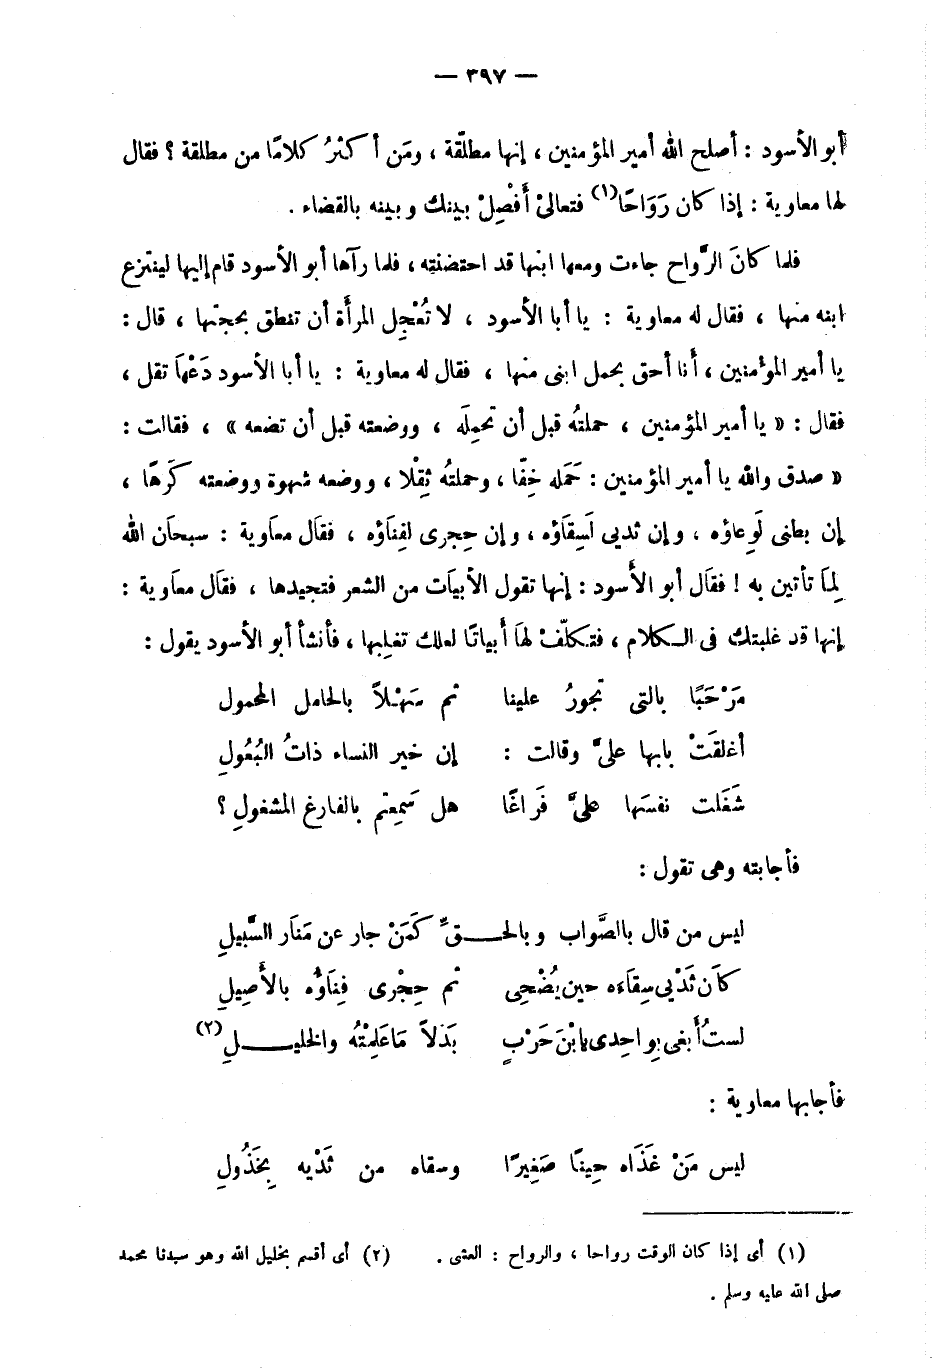 — ٣٩٧ —
أبو الأسود : أصلح الله أمير المؤمنين ، إنها مطلّقة ، ومَن أكثرُ كلامًا من مطلقة ؟ فقال
لها معاوية : إذا كان رَوَاحًا(١) فتعالىْ أَفْصِلْ بينك وبينه بالقضاء .
فلما كانَ الرَّواح جاءت ومعها ابنها قد احتضنته ، فلما رآها أبو الأسود قام إليها لينتزع
ابنه منها ، فقال له معاوية : يا أبا الأسود ، لا تُعْجِل المرأة أن تنطق بحجتها ، قال :
يا أمير المؤمنين ، أنا أحق بحمل ابنى منها ، فقال له معاوية : يا أبا الأسود دَعْهَا تقل ،
فقال : « يا أمير المؤمنين ، حملتُه قبل أن تحمِلَه ، ووضعته قبل أن تضعه » ، فقالت :
« صدق والله يا أمير المؤمنين : حَمَله خِفّا ، وحملتُه ثِقْلا ، ووضعه شهوة ووضعته كَرهًا ،
إن بطنى لَوِعاؤه ، وإن ثديى لَسِقَاؤه ، وإن حِجرى لفِنَاؤه ، فقال معاوية : سبحان الله
لِمَا تأتين به ! فقال أبو الأسود : إنها تقول الأبيات من الشعر فتجيدها ، فقال معاوية :
إنها قد غلبتك فى الكلام ، فتكلّفْ لها أبياتًا لعلك تغلِبها ، فأنشأ أبو الأسود يقول :
مَرْحَبًا بالتى تجورُ علينا ثم سَهْلاً بالحامل المحمول
أغلقَتْ بابها علىَّ وقالت : إن خير النساء ذاتُ البُعُولِ
شَغَلت نفسَها علىَّ فَراغًا هل سَمِعتم بالفارغ المشغولِ ؟
فأجابته وهى تقول :
ليس من قال بالصَّواب وبالحـــقِّ كَمَنْ جار عن مَنَار السَّبيلِ
كان ثَدْيى سِقاءَه حين يُضْحِى ثم حِجْرى فِنَاؤُه بالأَصِيلِ
لستُ أبغى بواحِدى يابْنَ حَرْبٍ بَدَلاً مَا عَلِمْتُه والخليـــلِ(٢)
فأجابها معاوية :
ليس مَنْ غَذَاه حِينًا صَغِيرًا وسقاه من ثَدْيه بِخَذُولِ
(١) أى إذا كان الوقت رواحا ، والرواح : العشى . (٢) أى أقسم بخليل الله وهو سيدنا محمد
صلى الله عليه وسلم .